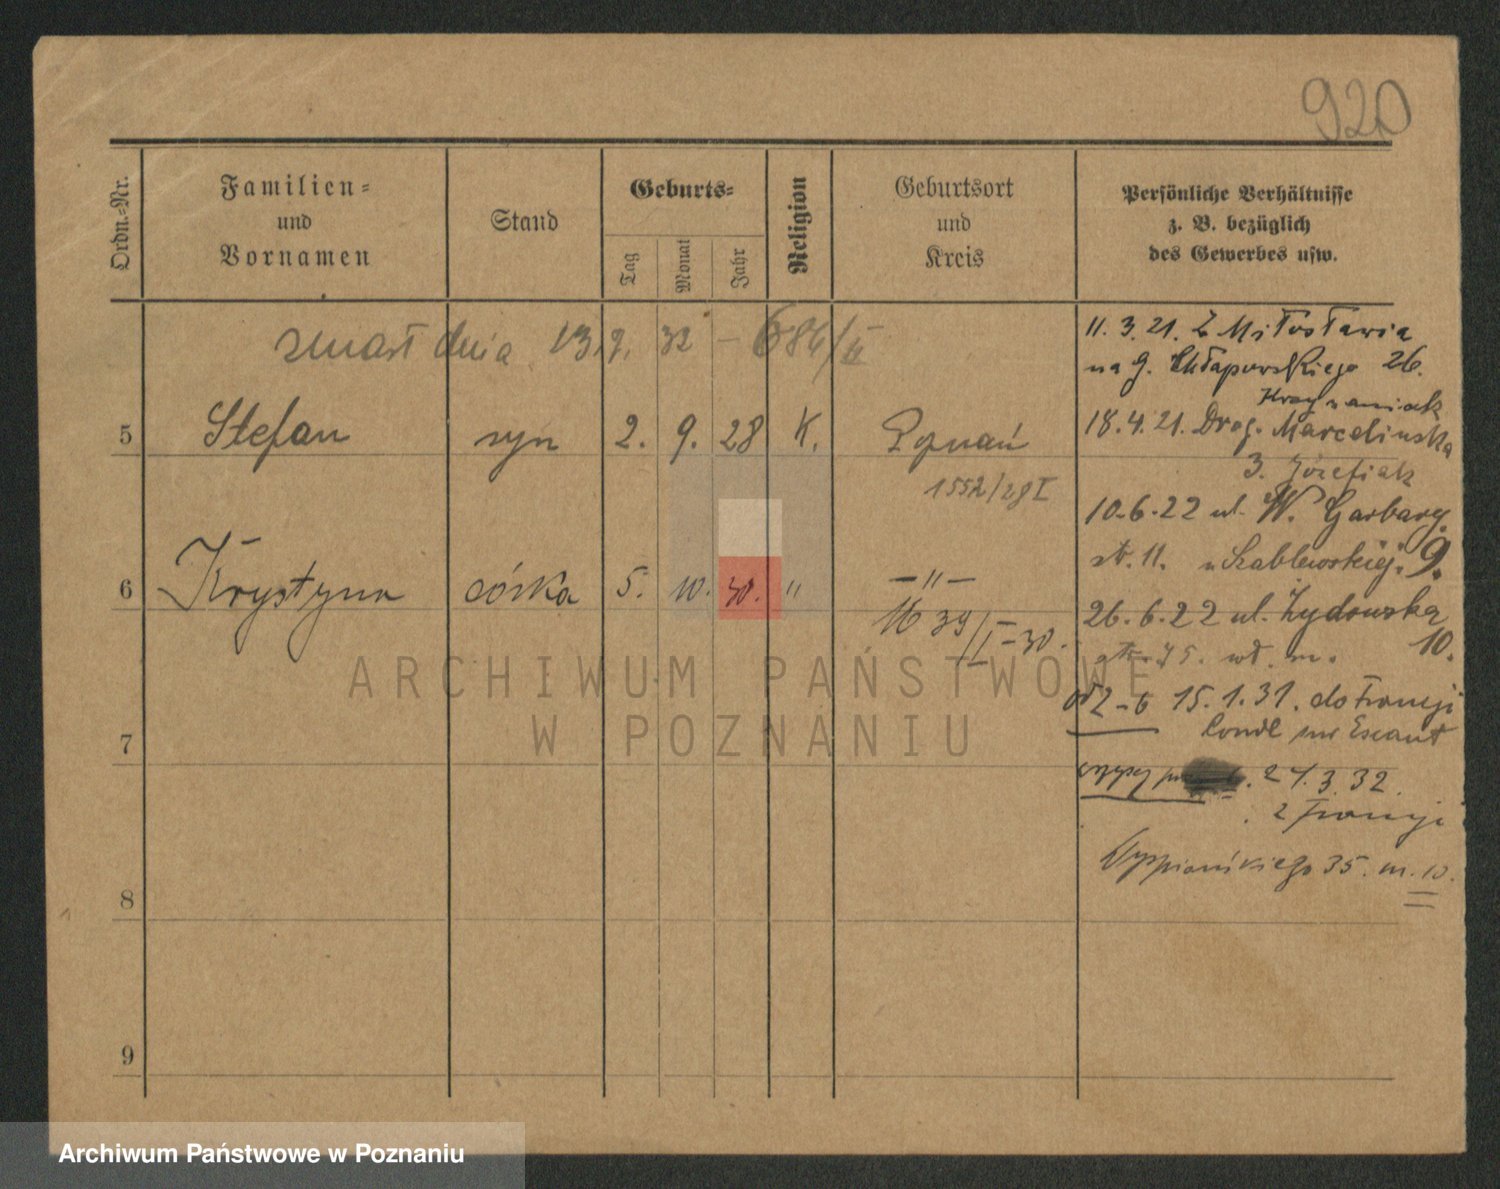 920
Ordn.-Nr.
Familien-
und
Vornamen
Stand
Geburts-
Tag
Monat
Jahr
Religion
Geburtsort
und
Kreis
Persönliche Verhältnisse
z. B. bezüglich
des Gewerbes usw.
zmarł dnia 13.9. 32 – 686/II
5 Stefan syn 2. 9. 28 K. Poznań
1552/28 I
6 Krystyna córka 5. 10. 30. " – " –
1639/I – 30.
7
8
9
11. 3. 21. z Miłosławia
na g. Chłapowskiego 26.
18. 4. 21. Drog. Marcelinska
3. Józefiak
10.6.22 ul. W. Garbary
str. 11. u Szablewskiej. 9.
26.6.22 ul. Żydowska
10.
str. 35. wł. m.
od 2–6 15.1.31. do Francji
Condé sur Escaut
wszyscy 21.3.32.
z Francji
Wyspiańskiego 35. m. 10.
ARCHIWUM PAŃSTWOWE
W POZNANIU
Archiwum Państwowe w Poznaniu